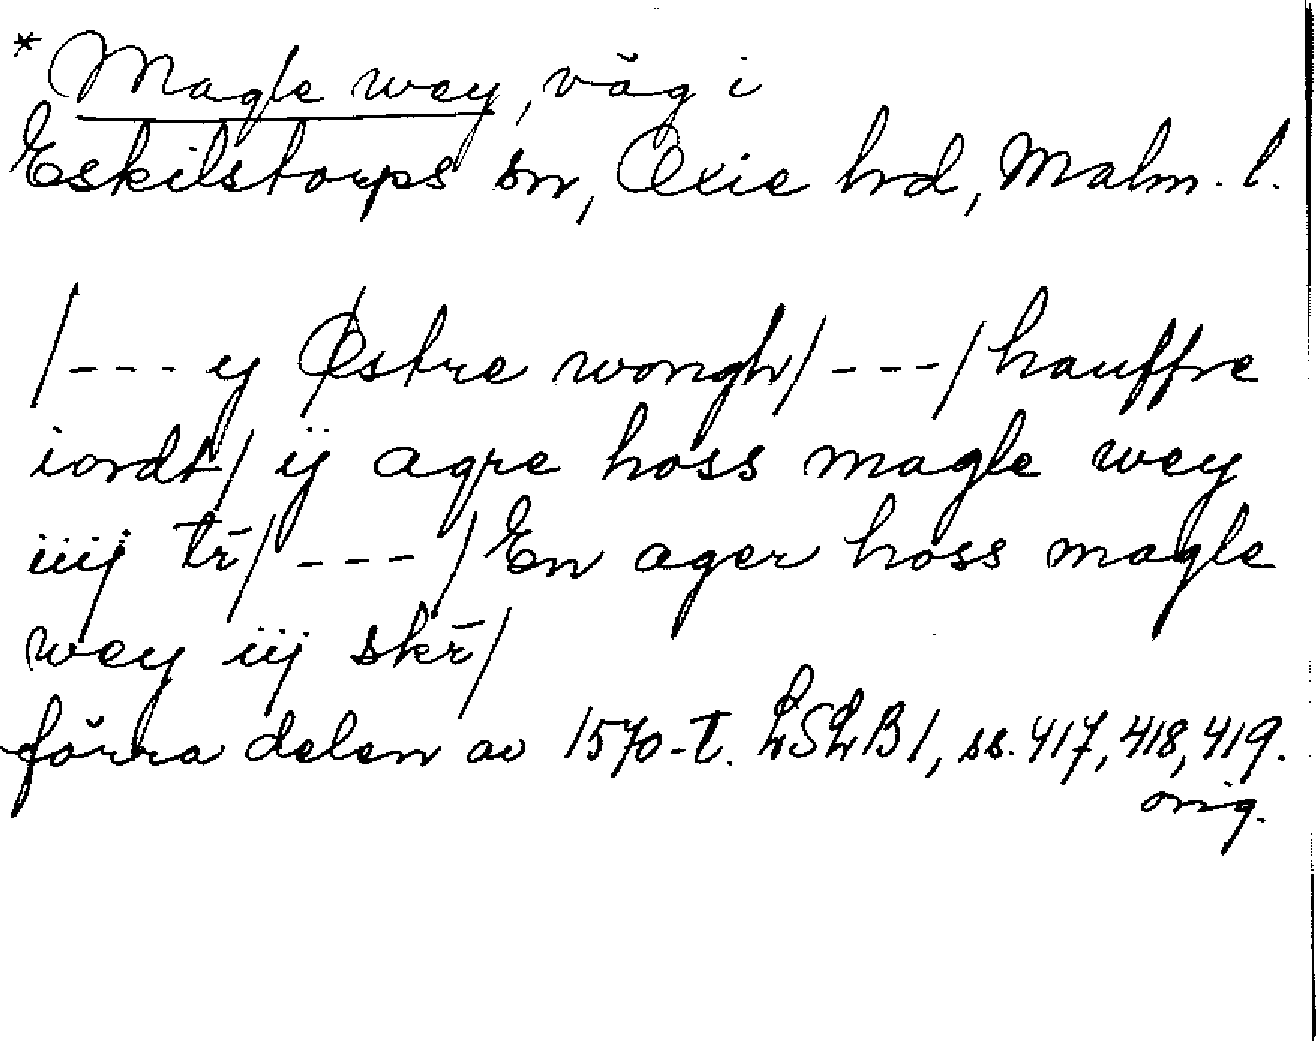 * Magle wey, väg i
Eskilstorps sn, Oxie hrd, Malm. l.
/--- y Østre wongh/ --- / hauffre
iordt/ ij agre hoss magle wey
iiij tr̄/ --- / En ager hoss magle
wey iij skr̄/
förra delen av 1570-t. LSLB1, ss. 417, 418, 419.
orig.